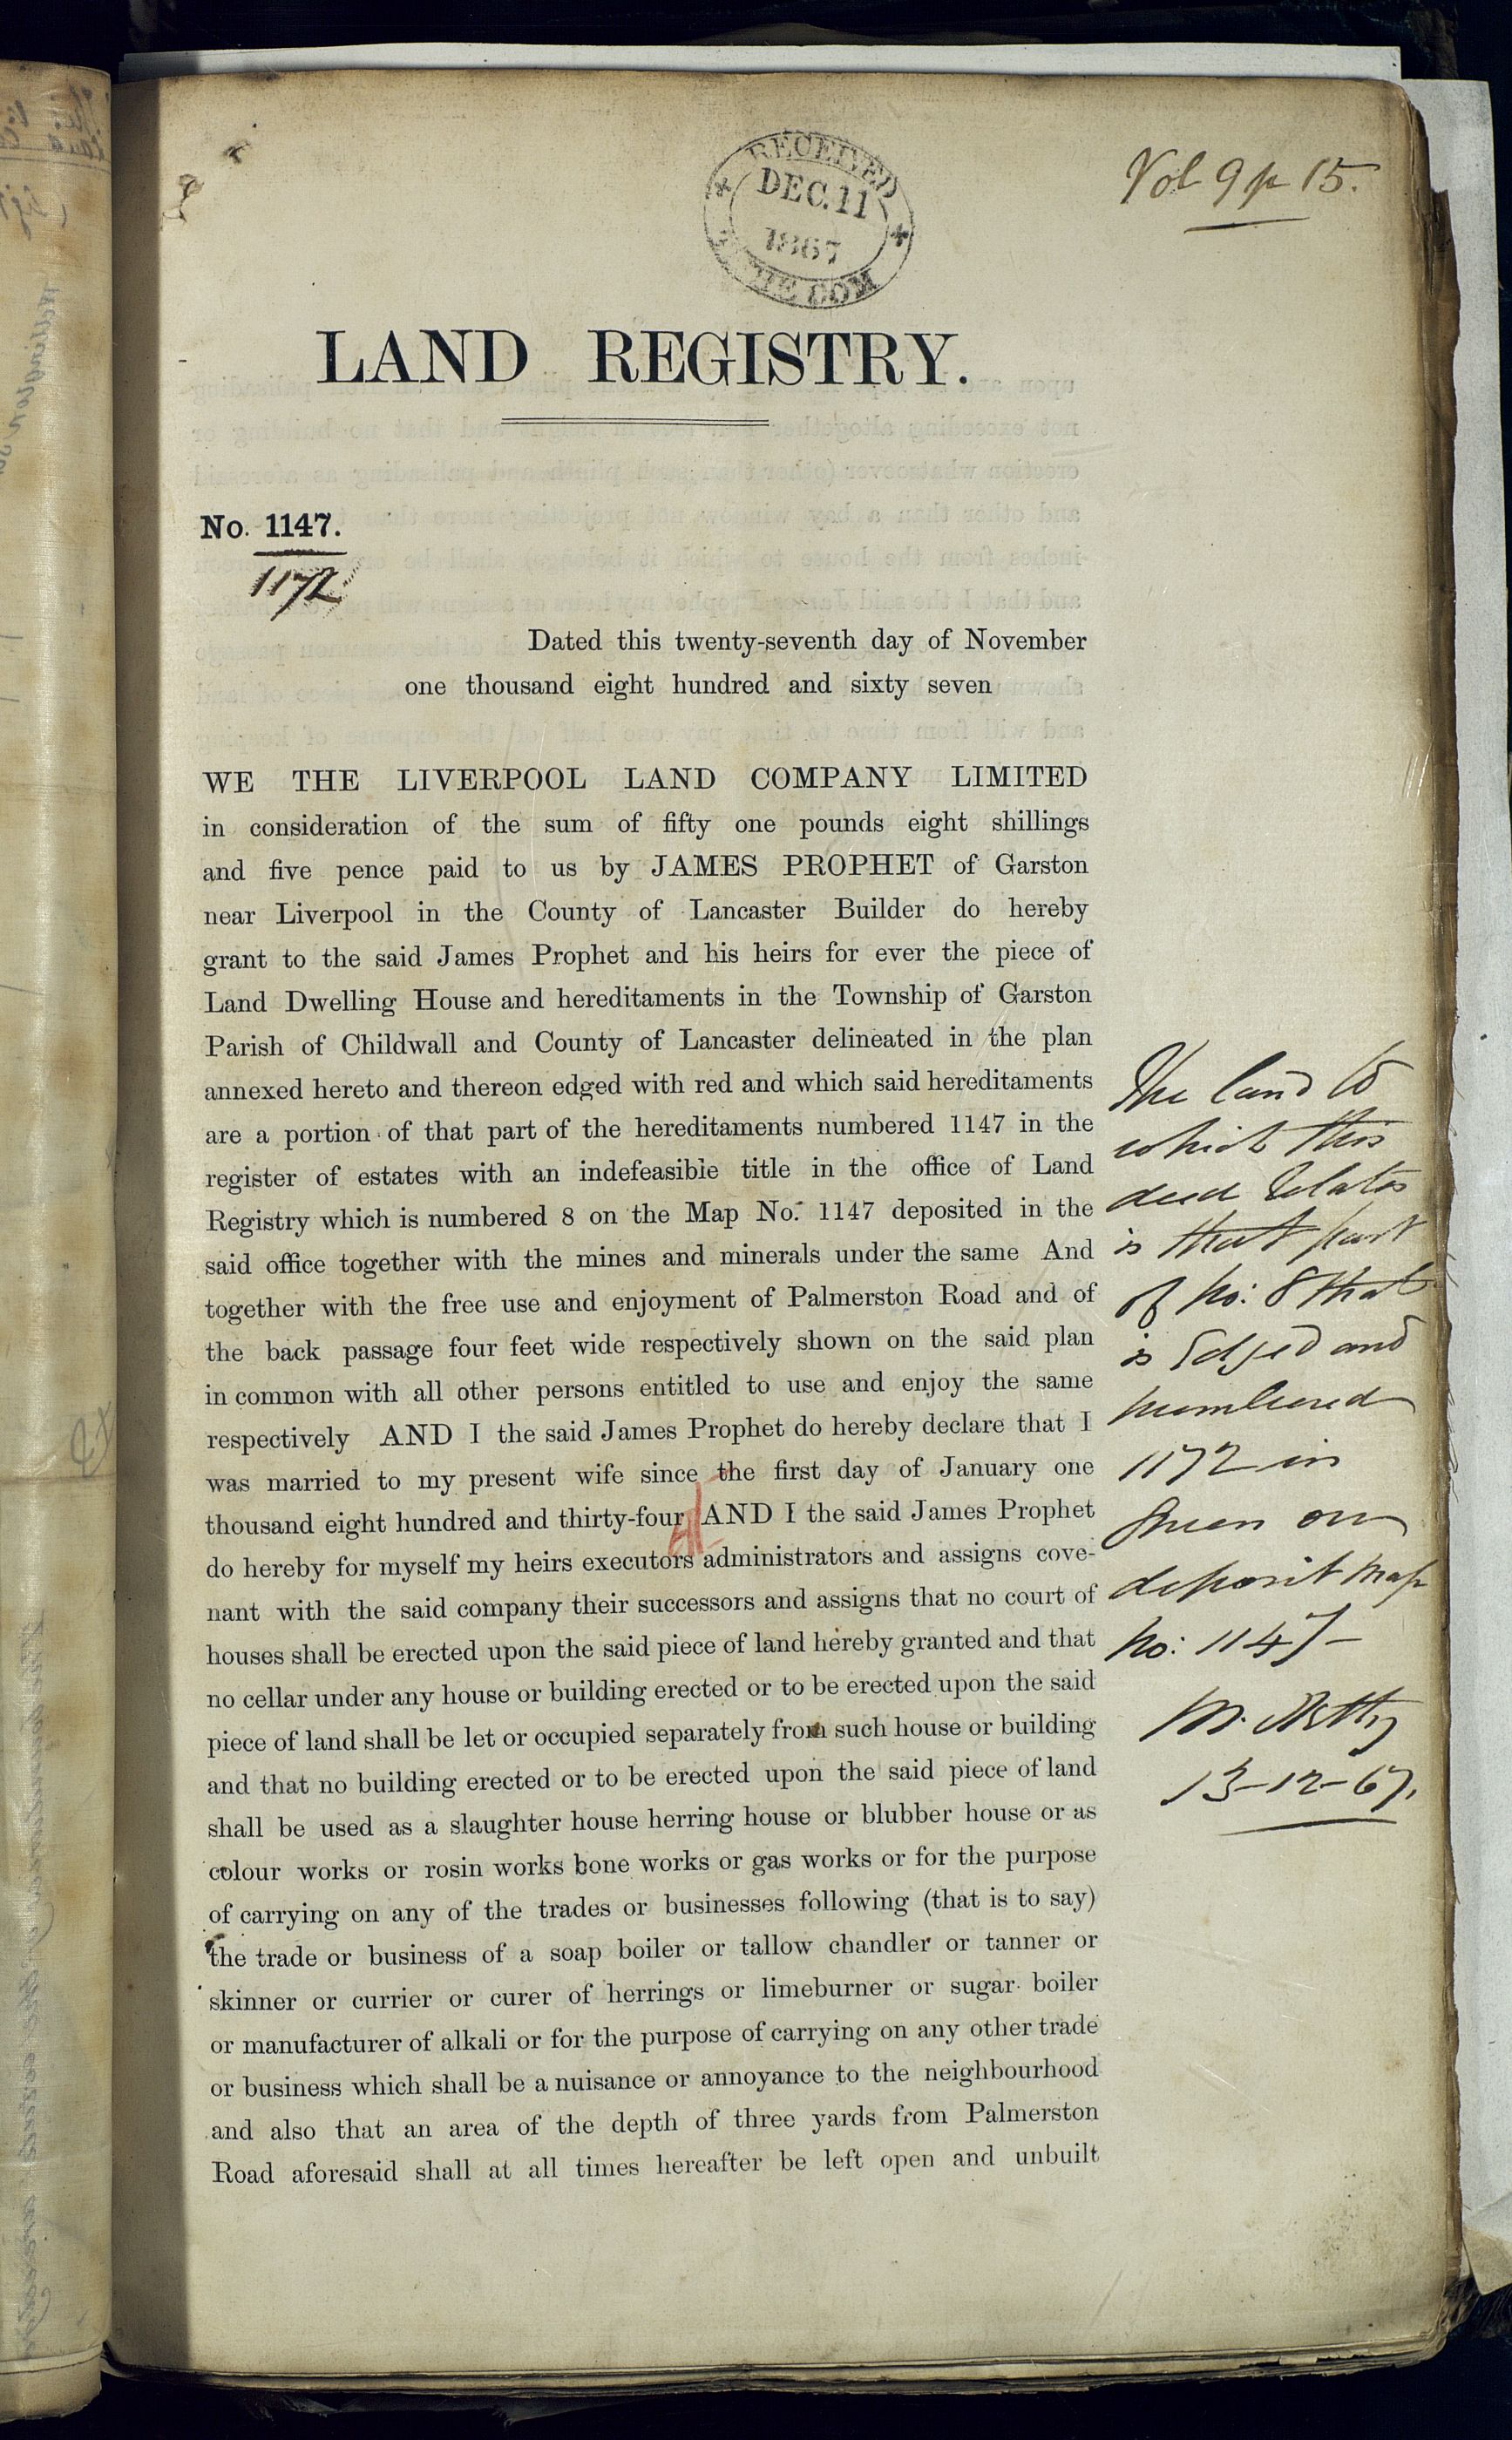 RECEIVED
DEC. 11
1867
Vol 9 p 15.
LAND REGISTRY.
No. 1147.
1172
Dated this twenty-seventh day of November
one thousand eight hundred and sixty seven
WE THE LIVERPOOL LAND COMPANY LIMITED
in consideration of the sum of fifty one pounds eight shillings
and five pence paid to us by JAMES PROPHET of Garston
near Liverpool in the County of Lancaster Builder do hereby
grant to the said James Prophet and his heirs for ever the piece of
Land Dwelling House and hereditaments in the Township of Garston
Parish of Childwall and County of Lancaster delineated in the plan
annexed hereto and thereon edged with red and which said hereditaments
are a portion of that part of the hereditaments numbered 1147 in the
register of estates with an indefeasible title in the office of Land
Registry which is numbered 8 on the Map No. 1147 deposited in the
said office together with the mines and minerals under the same And
together with the free use and enjoyment of Palmerston Road and of
the back passage four feet wide respectively shown on the said plan
in common with all other persons entitled to use and enjoy the same
respectively AND I the said James Prophet do hereby declare that I
was married to my present wife since the first day of January one
thousand eight hundred and thirty-four AND I the said James Prophet
do hereby for myself my heirs executors administrators and assigns cove-
nant with the said company their successors and assigns that no court of
houses shall be erected upon the said piece of land hereby granted and that
no cellar under any house or building erected or to be erected upon the said
piece of land shall be let or occupied separately from such house or building
and that no building erected or to be erected upon the said piece of land
shall be used as a slaughter house herring house or blubber house or as
colour works or rosin works bone works or gas works or for the purpose
of carrying on any of the trades or businesses following (that is to say)
the trade or business of a soap boiler or tallow chandler or tanner or
skinner or currier or curer of herrings or limeburner or sugar boiler
or manufacturer of alkali or for the purpose of carrying on any other trade
or business which shall be a nuisance or annoyance to the neighbourhood
and also that an area of the depth of three yards from Palmerston
Road aforesaid shall at all times hereafter be left open and unbuilt
The land to
which this
deed relates
is that part
of No: 8 that
is Edged and
numbered
1172 in
Green on
deposit Map
No: 1147
13-12-67.